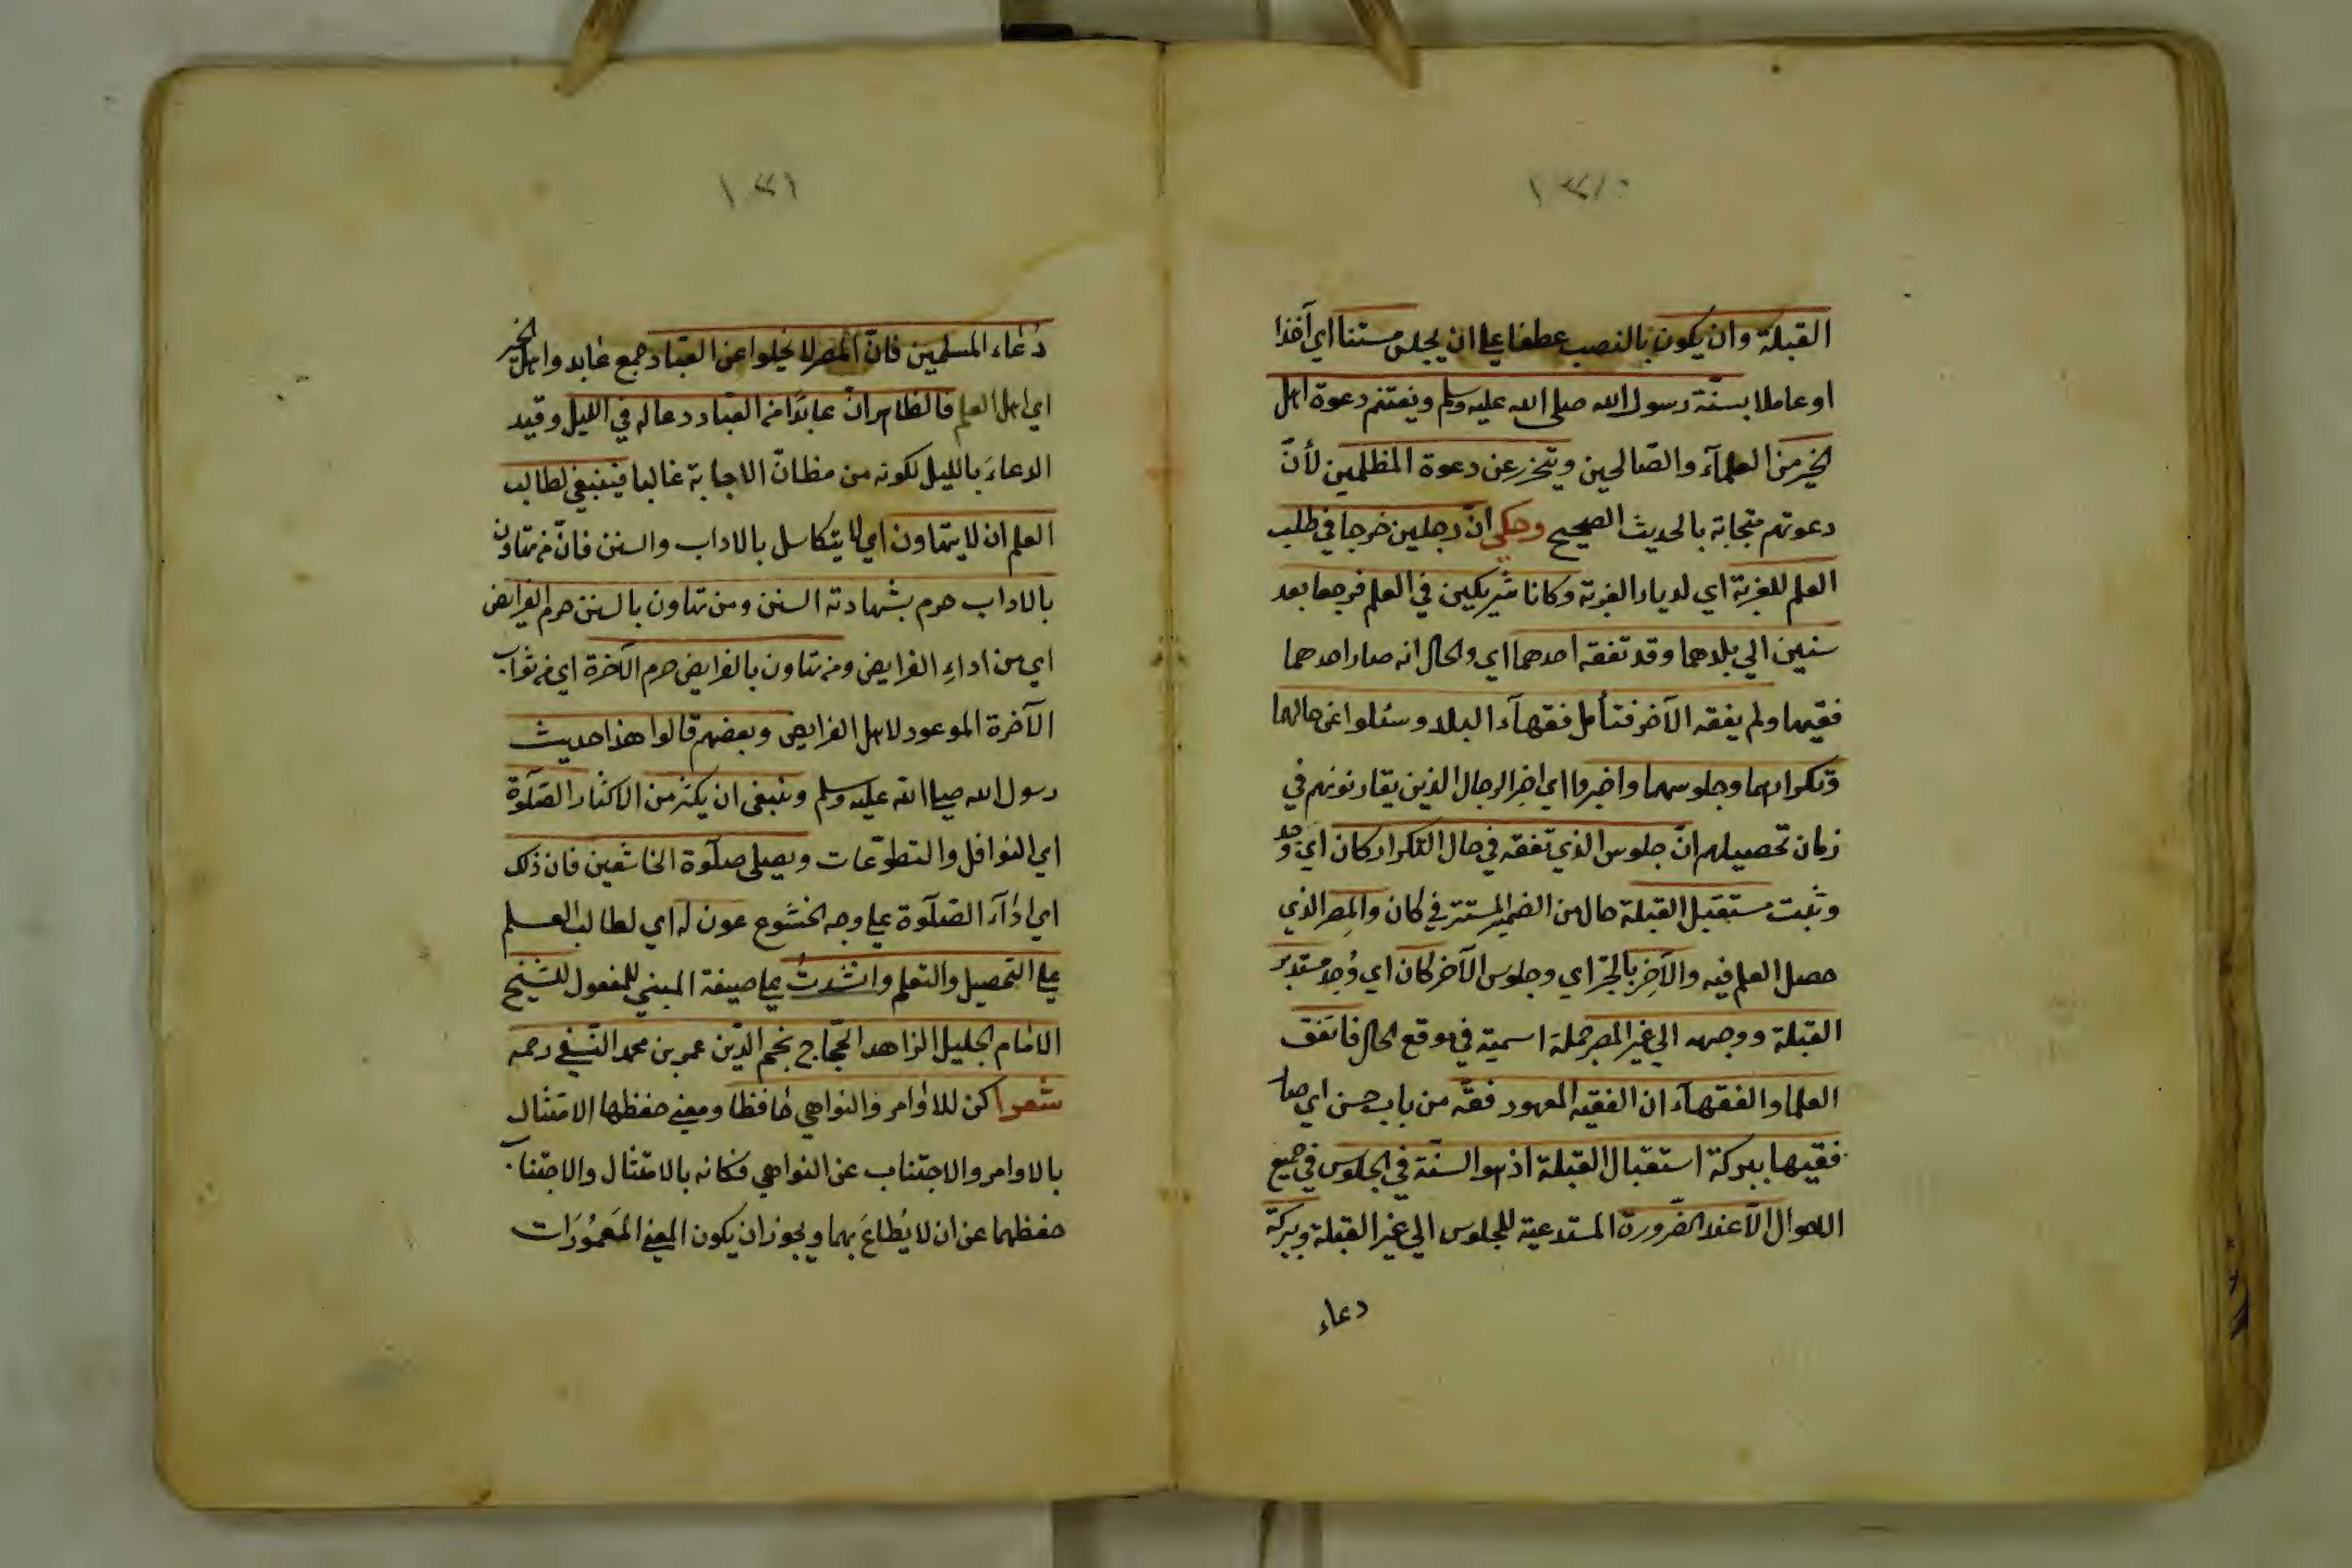 القبلة وان يكون بالنصب عطفا علي ان يجلس مستنا اي آخذا
او عاملا بسنّة رسول الله صلى الله عليه وسلم ويغتنم دعوة اهل
الخير من العلمآء والصّالحين ويتحرز عن دعوة المظلمين لأنّ
دعوتهم متجابة بالحديث الصحيح وحكي انّ رجلين خرجا في طلب
العلم للغربة اي لديار الغربة وكانا شريكين في العلم فرجعا بعد
سنين الي بلدهما وقد تفقه احدهما اي والحال انه صار احدهما
فقيها ولم يفقه الآخر فتأمل فقهآء البلد وسئلوا عن حالهما
وتكرارهما وجلوسهما واخبروا اي اخبر الرجال الذين يقارنونهم في
زمان تحصيلهم انّ جلوس الذي تفقه في حال التكرار كان اي وجد
وثبت مستقبل القبلة حال من الضمير المستتر في كان والمصر الذي
حصل العلم فيه والآخر بالجرّ اي وجلوس الآخر كان اي وُجد مستدبر
القبلة ووجهه الي غير المصر جملة اسمية في موقع الحال فاتفق
العلما والفقهآء ان الفقيه المعهود فقه من باب حسن اي صار
فقيها ببركة استقبال القبلة اذ هو السنّة في الجلوس في جميع
الاحوال الّا عند الضّرورة المستدعية للجلوس الي غير القبلة وبركة
دعاء
١٠٣١
دعاء المسلمين فانّ المصر لا يخلوا عن العبّاد جمع عابد واهل الخير
اي اهل العلم فالظاهر انّ عابدًا من العبّاد دعا له في الليل وقيد
الدعاءَ بالليل لكونه من مظانّ الاجابة غالبا فينبغي لطالب
العلم ان لا يتهاون اي لا يتكاسل بالاداب والسنن فانّ من تهاون
بالاداب حرم بشهادته السنن ومن تهاون بالسنن حرم الفرايض
اي من اداءِ الفرايض ومن تهاون بالفرايض حرم الآخرة اي من ثواب
الآخرة الموعود لاهل الفرايض وبعضهم قالوا هذا حديث
رسول الله صلي الله عليه وسلم وينبغى ان يكثر من الاكثار الصّلٰوة
اي النوافل والتطوّعات ويصلى صلٰوة الخاشعين فان ذلك
اي اداء الصّلٰوة علي وجه الخشوع عون له اي لطالب العلم
علي التحصيل والتعلم وانشدتُ علي صيغة المبني للمفعول للشّيخ
الامام الجليل الزاهد الحجّاج نجم الدّين عمر بن محمد النّسفي رحمه
شعرا كن للاوامر والنواهي حافظا ومعني حفظها الامتثال
بالاوامر والاجتناب عن النواهي فكانه بالامتثال والاجتناب
حفظهما عن ان لا يُطاعَ بهما ويجوز ان يكون المعني المَعمُورَات